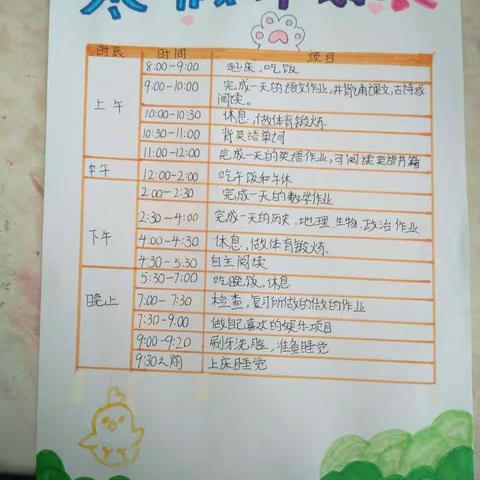 寒假计划表
时辰 时间 项目
上午 8:00-9:00 起床,吃饭
9:00-10:00 完成一天的语文作业,并背诵课文,古诗或
阅读。
10:00-10:30 休息,做体育锻炼
10:30-11:00 背英语单词
11:00-12:00 完成一天的英语作业,可阅读
中午 12:00-2:00 吃午饭和午休
下午 2:00-2:30 完成一天的数学作业
2:30-4:00 完成一天的历史、地理、生物、政治作业
4:00-4:30 休息,做体育锻炼
4:30-5:30 自主阅读
晚上 5:30-7:00 吃晚饭,休息
7:00-7:30 检查,复习所做的做的作业
7:30-9:00 做自己喜欢的娱乐项目
9:00-9:20 刷牙洗脸,准备睡觉
9:30之前 上床睡觉